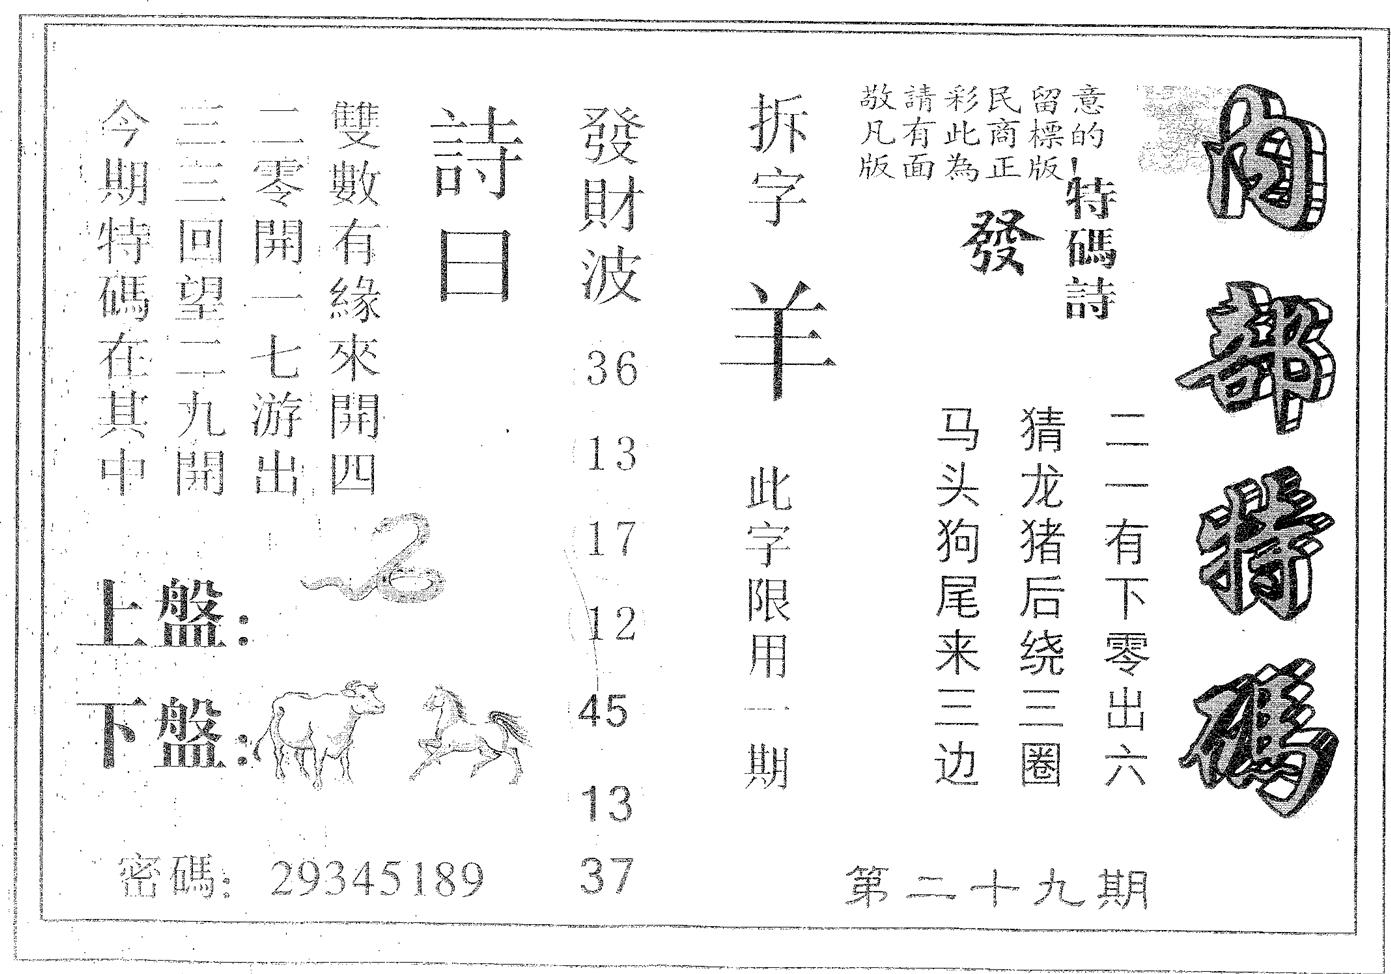 内部特碼
敬請彩民留意
凡有此商標的
版面為正版!
特碼詩
發
二一有下零出六
猜龙猪后绕三圈
马头狗尾来三边
第二十九期
拆字
羊
此字限用一期
發財波
36
13
17
12
45
13
37
詩曰
雙數有緣來開四
二零開一七游出
三三回望二九開
今期特碼在其中
上盤:
下盤:
密碼: 29345189